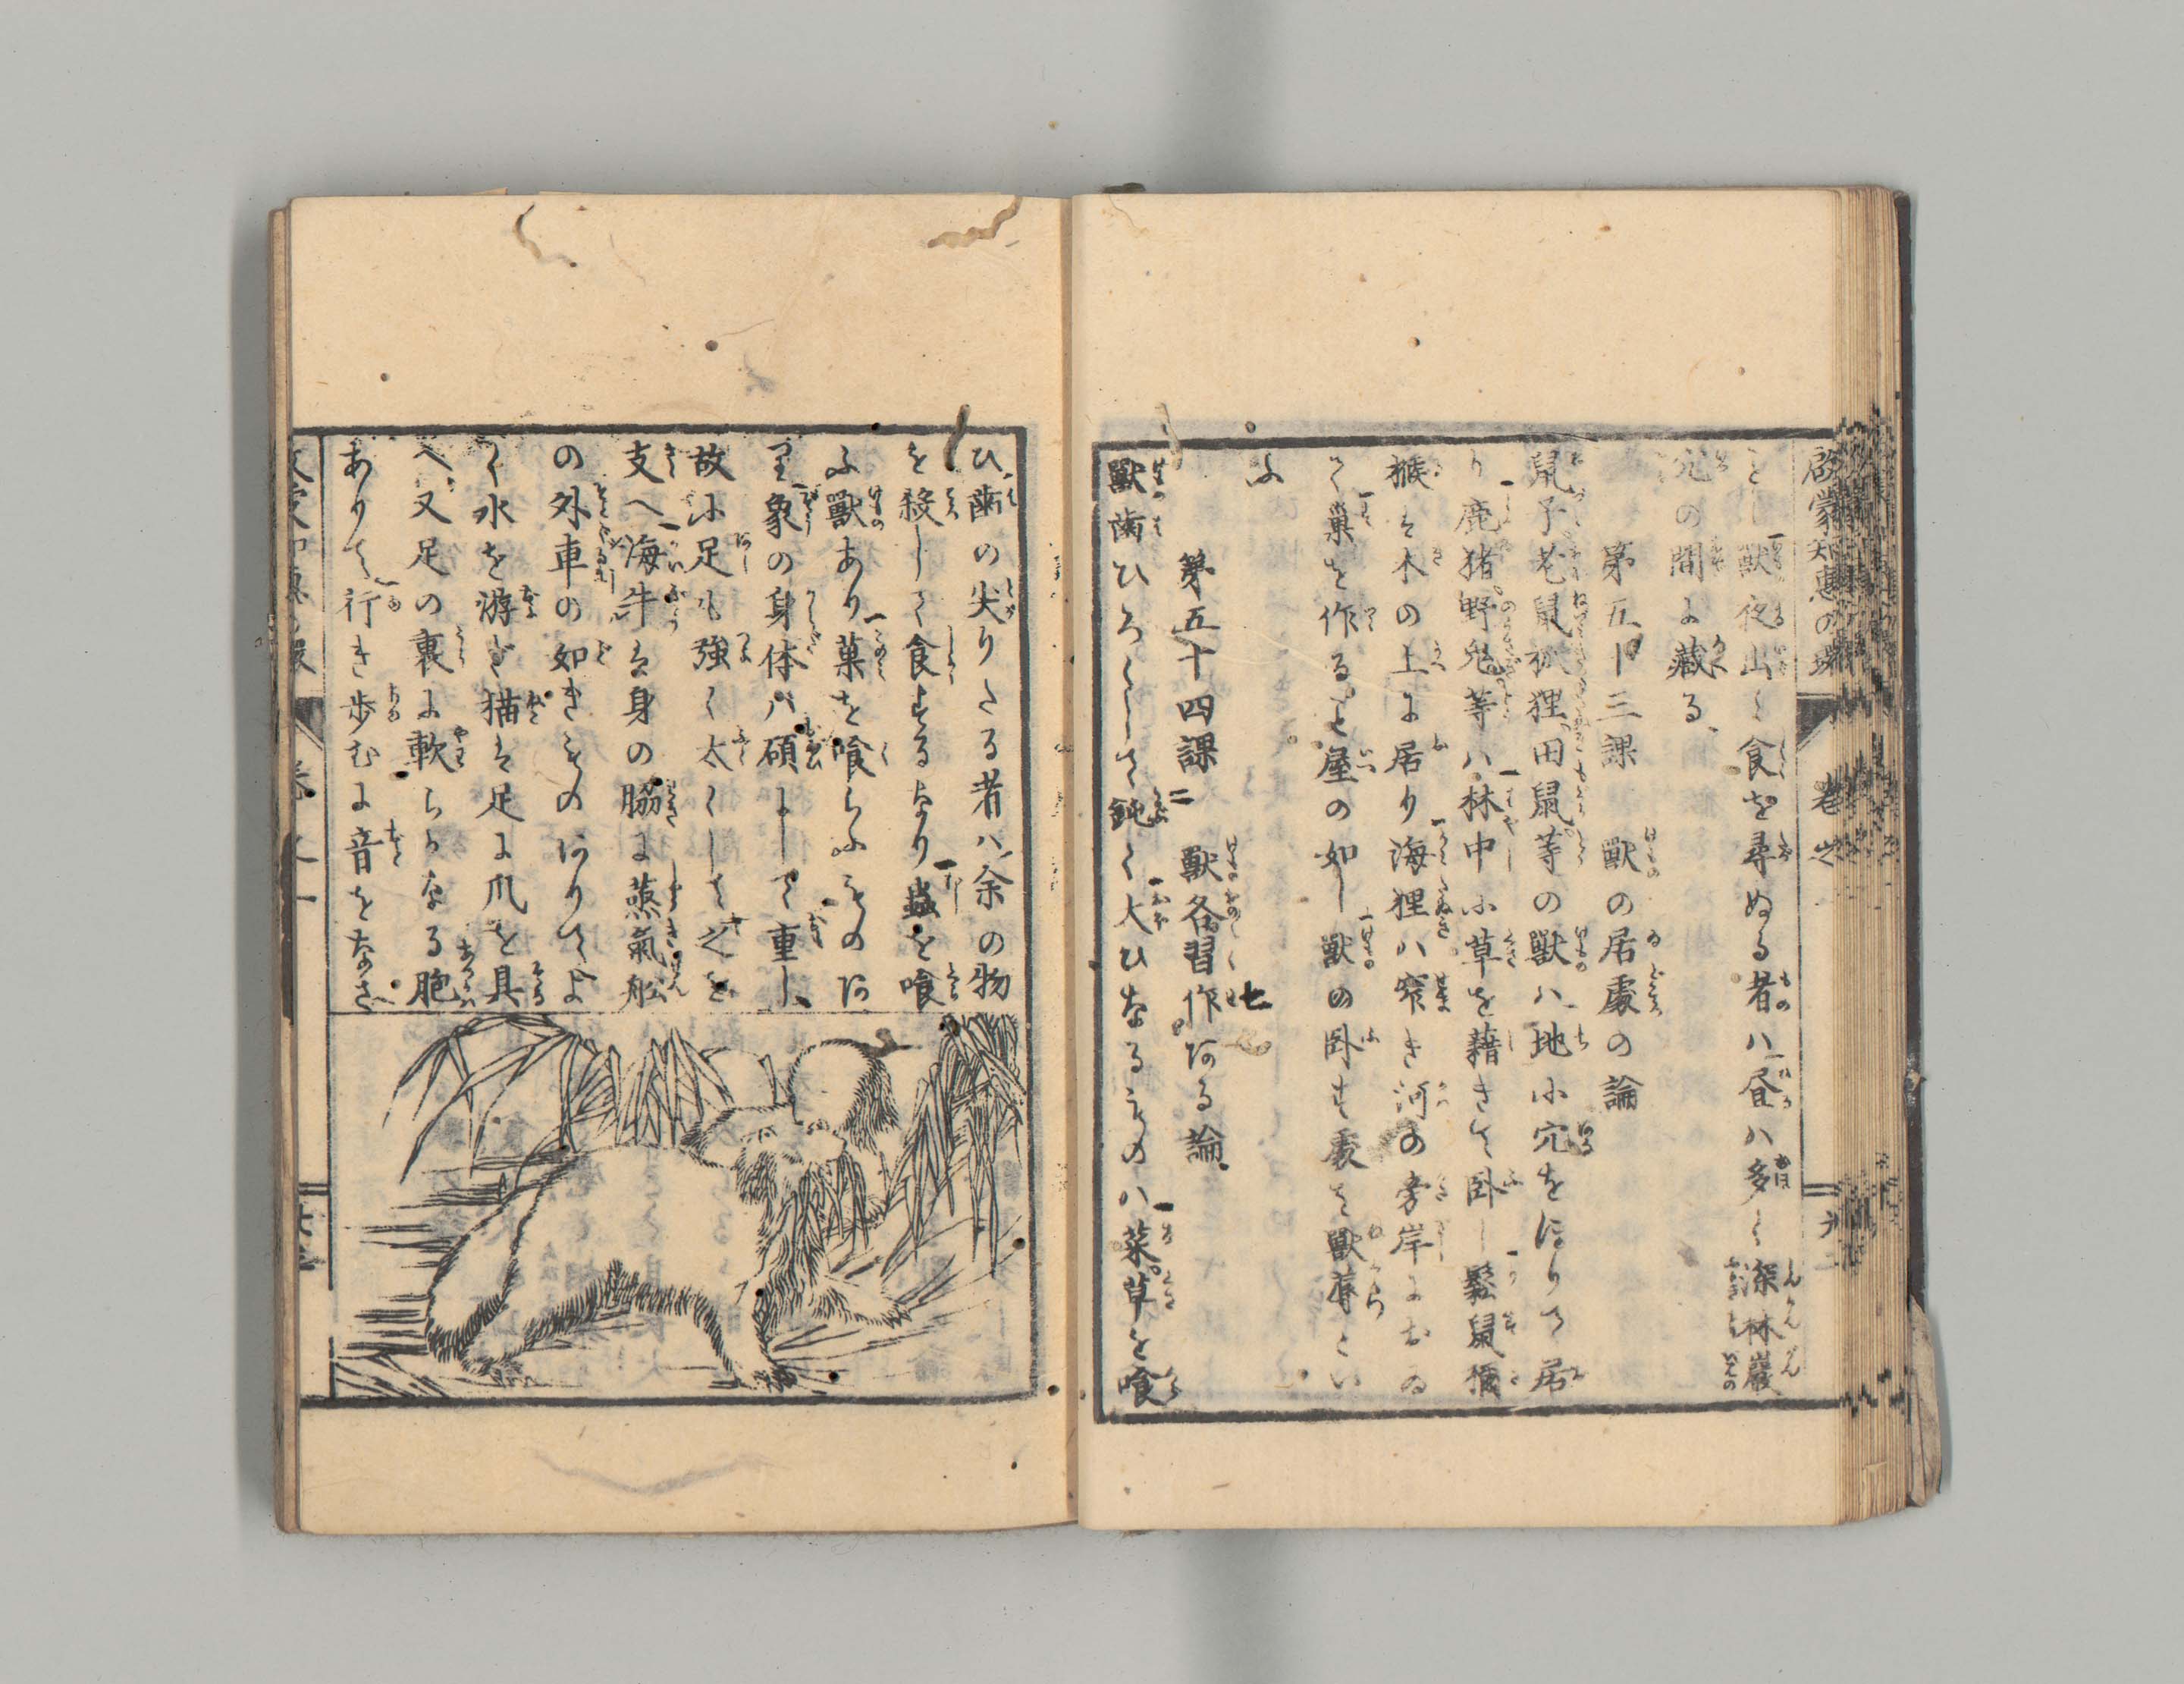 啓蒙知恵の環 巻之
とし獣夜出て食を尋ぬる者ハ昼ハ多く深林巌
穴の間に蔵る
第五十三課 獣の居處の論
鼠子老鼠狐狸田鼠等の獣ハ地小穴をほりて居
り鹿猪野兎等ハ林中小草を藉きて臥し鬆鼠獼
猴は木の上に居り海狸ハ窄き河の旁岸にお
て巣を作ること屋の如し獣の臥す處を獣 とい
ふ
第五十四課 獣各習作ある論
獣歯ひろくして鈍く大ひなるものハ菜草を喰
ひ歯の尖りたる者ハ余の物
を殺して食するなり蟲を喰
ふ獣あり菓を喰らふものあ
り象の身体ハ碩にして重し
故小足も強く太くして之を
支へ海牛は身の脇に蒸氣船
の外車の如きものありてよ
く水を游ぎ猫は足に爪を具
へ又足の裏に軟らかなる胞
ありて行き歩むに音をなさ